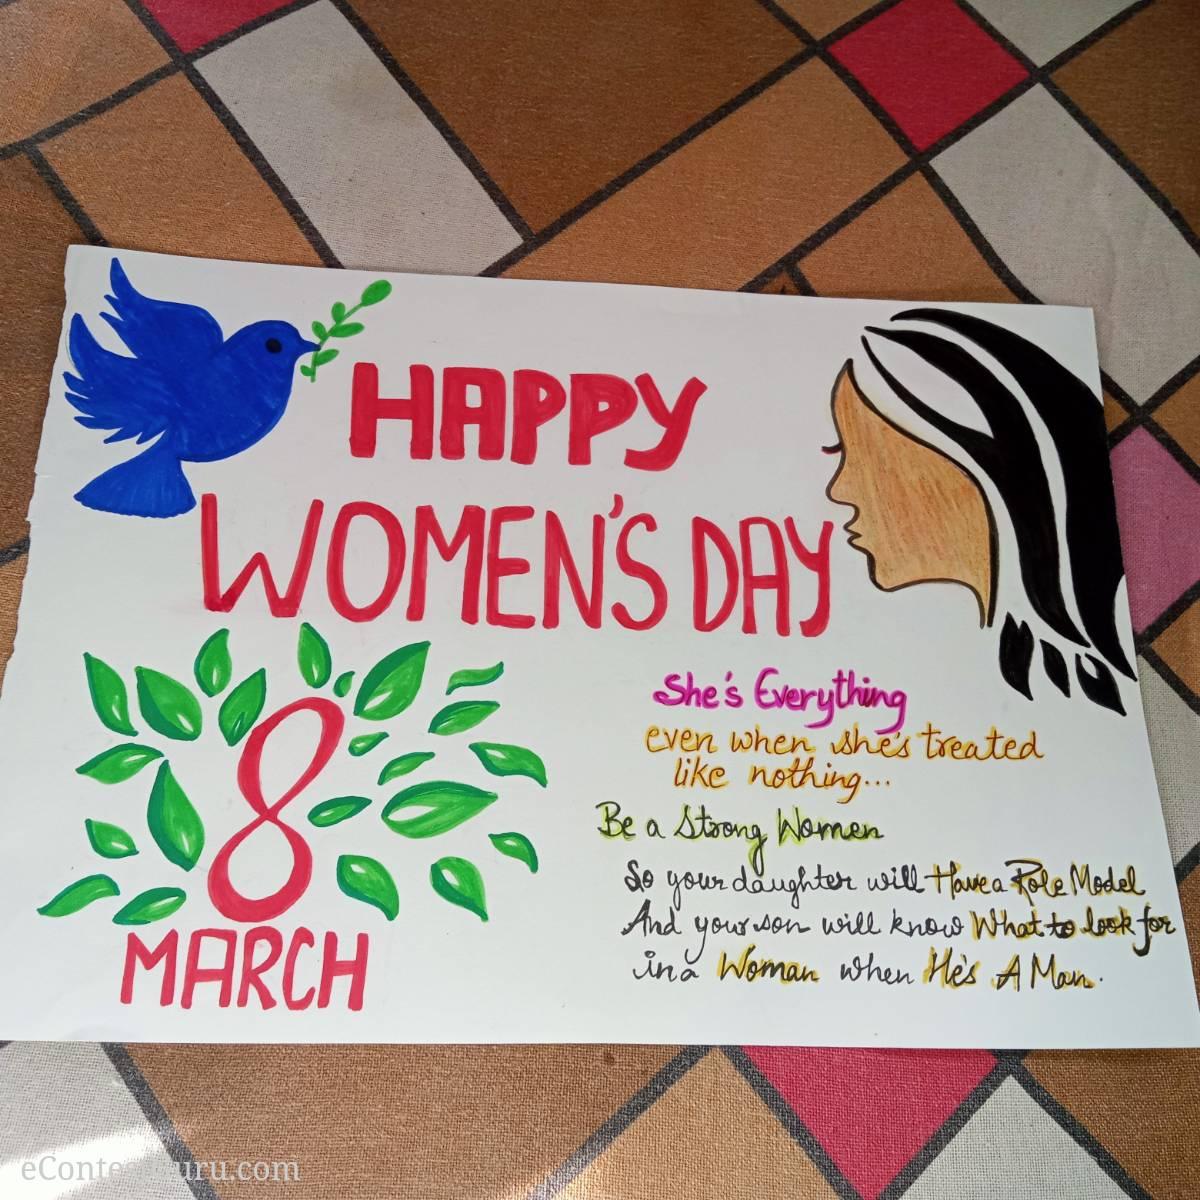 HAPPY
WOMEN'S DAY
8
MARCH
She's Everything
even when she's treated
like nothing...
Be a Strong Women
So your daughter will Have a Role Model
And your son will know What to look for
in a Woman when He's A Man.